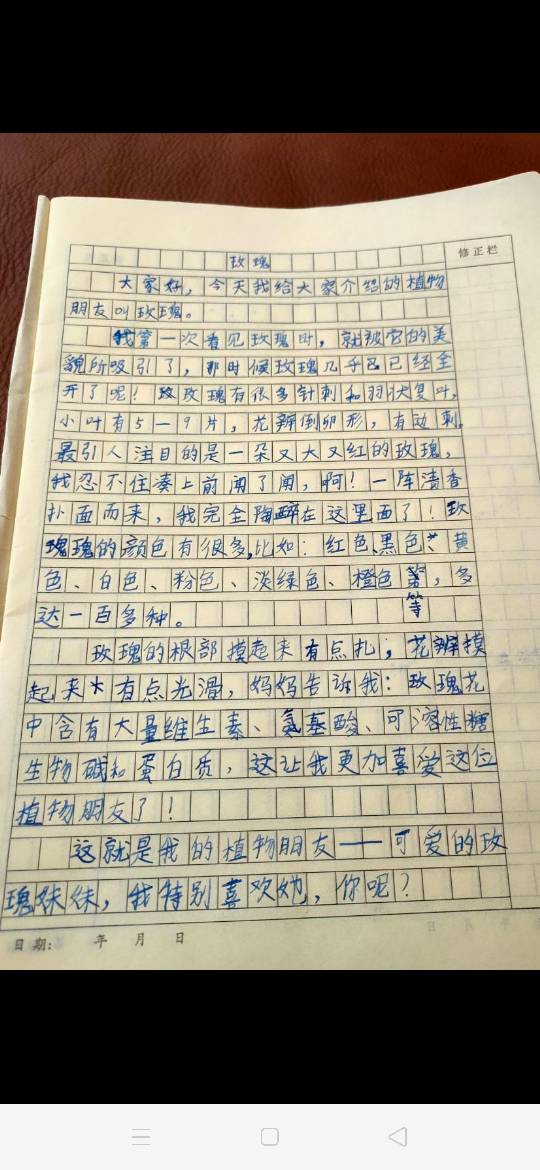 修正栏
玫瑰
大家好，今天我给大家介绍的植物
朋友叫玫瑰。
我第一次看见玫瑰时，就被它的美
貌所吸引了，那时候玫瑰几乎已经全
开了呢！玫瑰有很多针刺和羽状复叶，
小叶有5—9片，花瓣倒卵形，有边刺。
最引人注目的是一朵又大又红的玫瑰，
我忍不住凑上前闻了闻，啊！一阵清香
扑面而来，我完全陶醉在这里面了！玫
瑰瑰的颜色有很多，比如：红色、黑色、黄
色、白色、粉色、淡绿色、橙色等，多
达一百多种。
玫瑰的根部摸起来有点扎，花瓣摸
起来有点光滑，妈妈告诉我：玫瑰花
中含有大量维生素、氨基酸、可溶性糖
生物碱和蛋白质，这让我更加喜爱这位
植物朋友了！
这就是我的植物朋友——可爱的玫
瑰妹妹，我特别喜欢她，你呢？
日期： 年 月 日